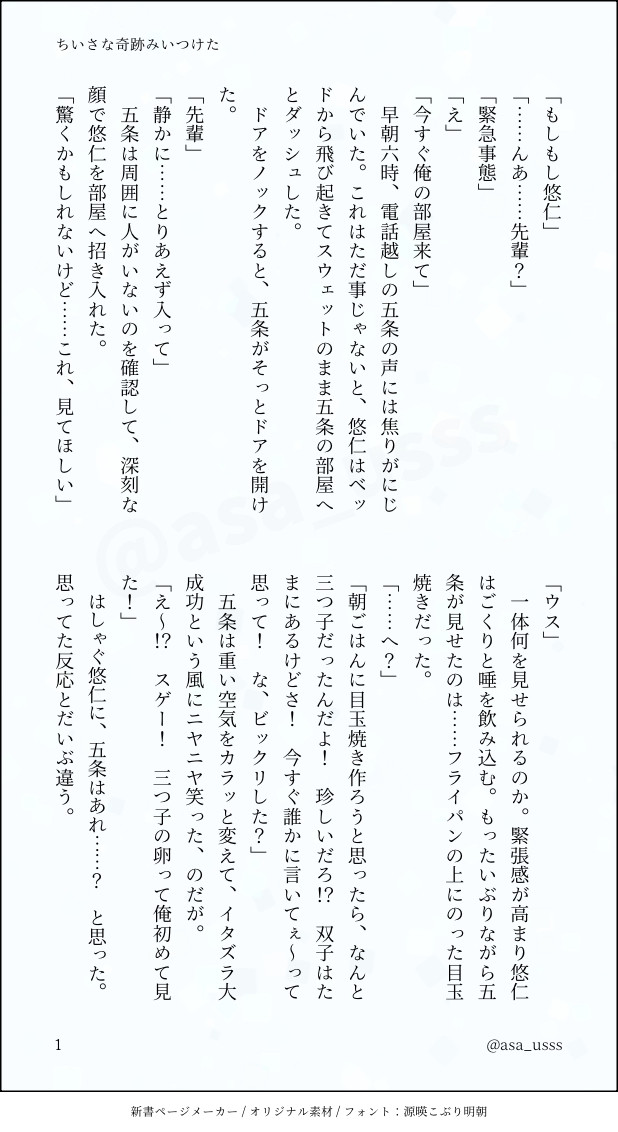 ちいさな奇跡みいつけた
「もしもし悠仁」
「……んあ……先輩？」
「緊急事態」
「え」
「今すぐ俺の部屋来て」
　早朝六時、電話越しの五条の声には焦りがにじ
んでいた。これはただ事じゃないと、悠仁はベッ
ドから飛び起きてスウェットのまま五条の部屋へ
とダッシュした。
　ドアをノックすると、五条がそっとドアを開け
た。
「先輩」
「静かに……とりあえず入って」
　五条は周囲に人がいないのを確認して、深刻な
顔で悠仁を部屋へ招き入れた。
「驚くかもしれないけど……これ、見てほしい」
「ウス」
　一体何を見せられるのか。緊張感が高まり悠仁
はごくりと唾を飲み込む。もったいぶりながら五
条が見せたのは……フライパンの上にのった目玉
焼きだった。
「……へ？」
「朝ごはんに目玉焼き作ろうと思ったら、なんと
三つ子だったんだよ！　珍しいだろ!?　双子はた
まにあるけどさ！　今すぐ誰かに言いてぇ～って
思って！　な、ビックリした？」
　五条は重い空気をカラッと変えて、イタズラ大
成功という風にニヤニヤ笑った、のだが。
「え～!?　スゲー！　三つ子の卵って俺初めて見
た！」
　はしゃぐ悠仁に、五条はあれ……？　と思った。
思ってた反応とだいぶ違う。
@asa_usss
1
@asa_usss
新書ページメーカー / オリジナル素材 / フォント：源暎こぶり明朝